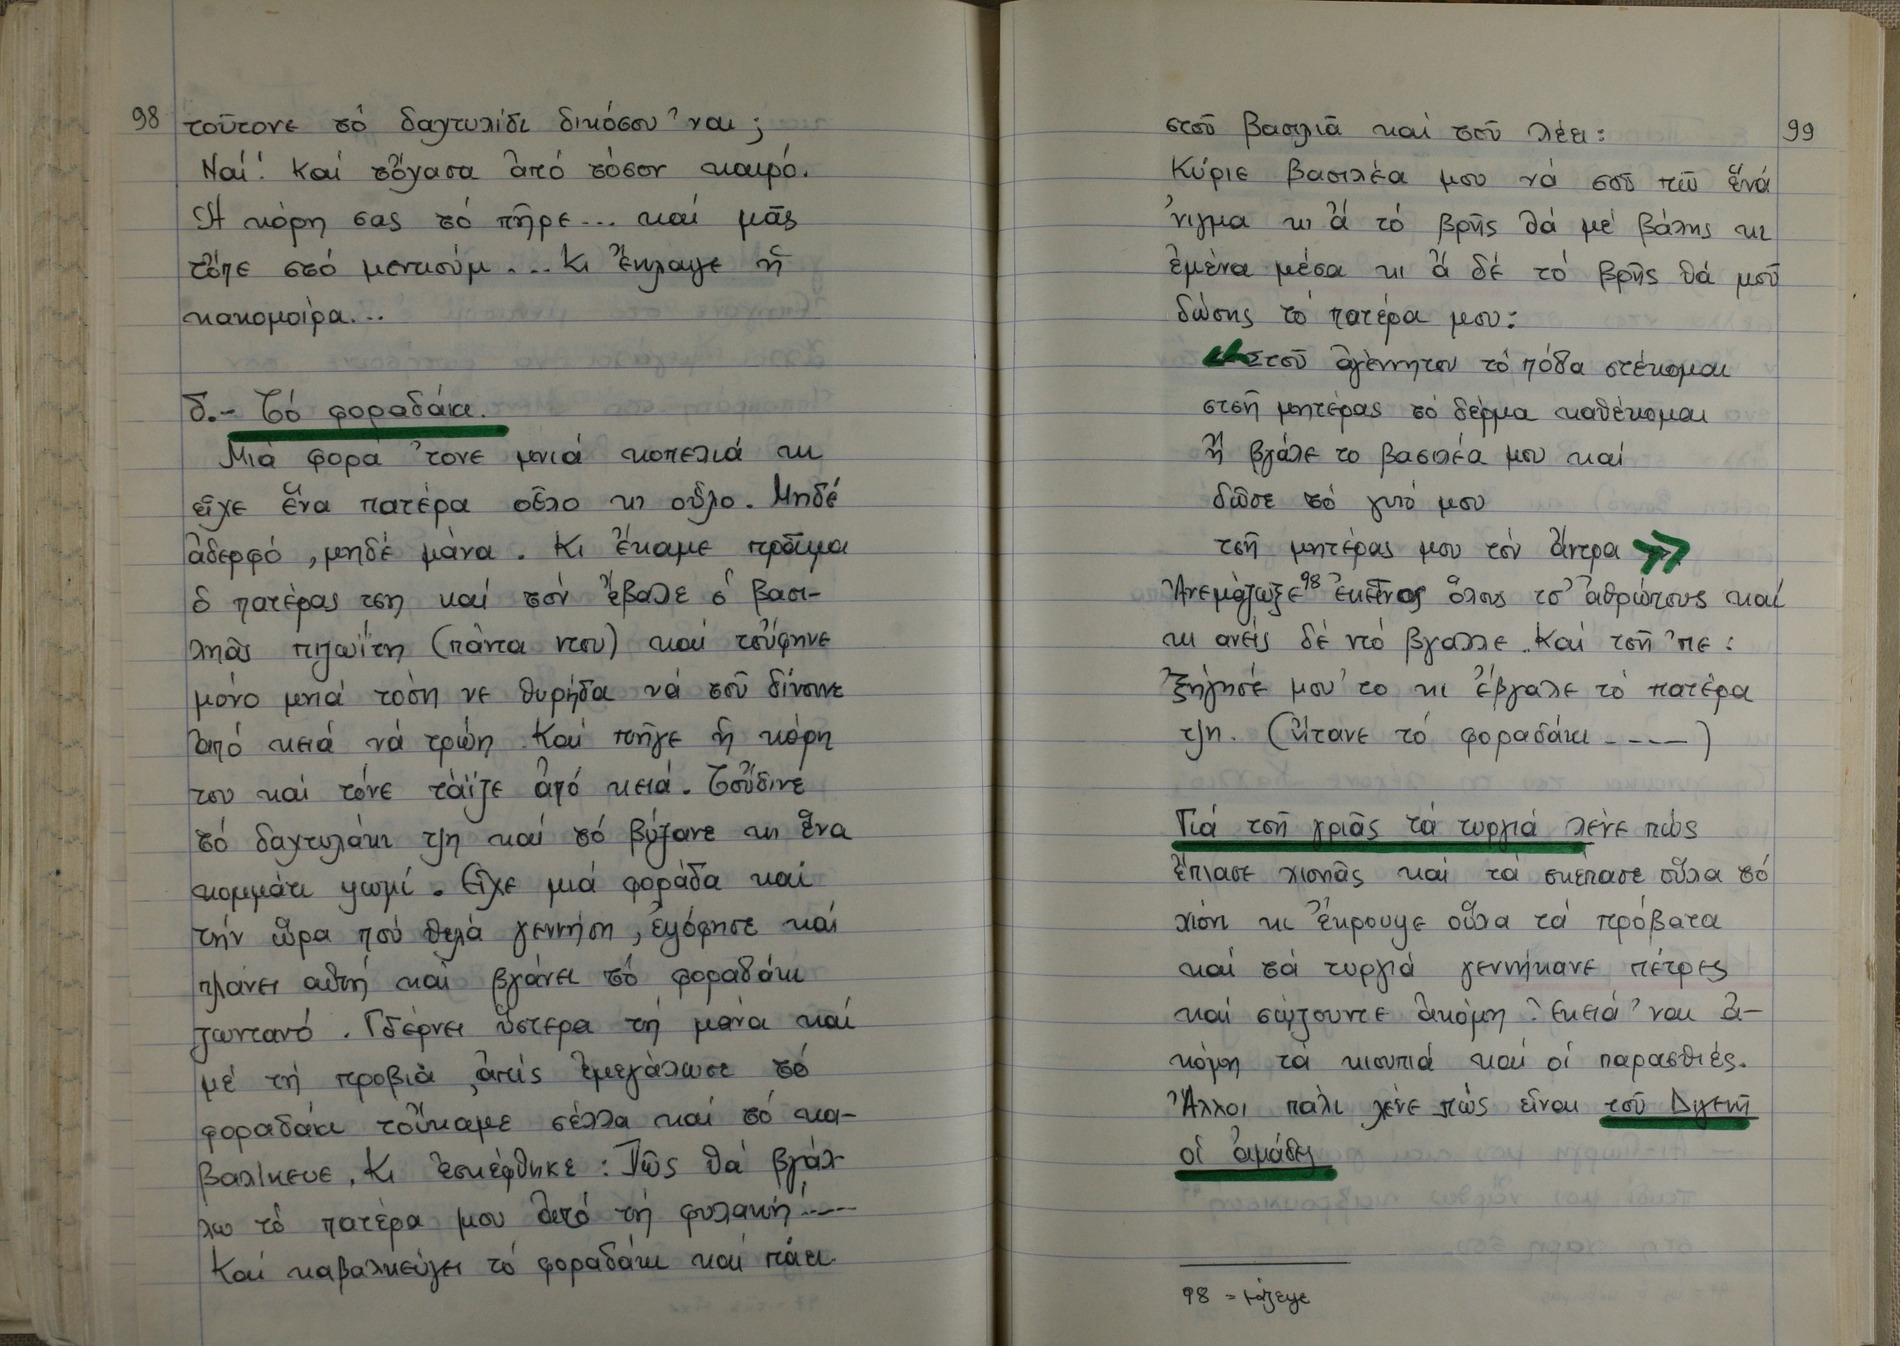 98
τοῦτονε τό δαχτυλίδι δικόσου 'ναι;
Ναί! Καί τὄχασα ἀπό τόσον καιρό.
Ἡ κόρη σας τό πῆρε... καί μᾶς
τὄπε στό μενκσύμ... Κι ἔκλαιγε ἡ
κακομοίρα...
δ.- Τό φοραδάκι.
Μιά φορά 'τονε μνιά κοπελιά κι
εἶχε ἕνα πατέρα οὗλο κι οὗλο. Μηδέ
ἀδερφό, μηδέ μάνα. Κι ἔκαμε πρᾶμα
ὁ πατέρας τση καί τόν ἔβαλε ὁ βασι-
λιᾶς πιζωΐτη (πάντα ντου) καί τοὔφηνε
μόνο μνιά τόση νε θυρήδα νά τοῦ δίνουνε
ἀπό κειά νά τρώη. Καί πῆγε ἡ κόρη
του καί τόνε τάϊζε ἀπό κειά. Τοὔδινε
τό δαχτυλάκι τζη καί τό βύζανε κι ἕνα
κομμάτι ψωμί. Εἶχε μιά φοράδα καί
τήν ὥρα πού θελά γεννήση, ἐψόφησε καί
πιάνει αὐτή καί βγάνει τό φοραδάκι
ζωντανό. Γδέρνει ὕστερα τή μάνα καί
μέ τή προβιά, ἀπίς ἐμεγάλωσε τό
φοραδάκι τοὔκαμε σέλλα καί τό κα-
βαλίκευε. Κι ἐσκέφθηκε: Πῶς θά βγάλ-
λω τό πατέρα μου ἀπό τή φυλακή....
Καί καβαλκεύγει τό φοραδάκι καί πάει
99
στοῦ βασιλιᾶ καί τοῦ λέει:
Κύριε βασιλέα μου νά σοῦ πῶ ἕνα
'νιγμα κι ἄ τό βρῆς θά μέ βάλης κι
ἐμένα μέσα κι ἄ δέ τό βρῆς θά μοῦ
δώσης τό πατέρα μου:
«στοῦ ἀγέννητου τό πόδα στέκομαι
στσῆ μητέρας τό δέρμα καθέκομαι
Ἤ βγάλε το βασιλέα μου καί
δῶσε τό γυιό μου
τσῆ μητέρας μου τόν ἄντρα»
Ἀνεμάζωξε⁹⁸ ἐκεῖνος ὅλους τσ' ἀθρώπους καί
κι ανείς δέ ντό βγαλλε. Καί τσῆ 'πε:
Ξήγησέ μου' το κι ἔβγαλε τό πατέρα
τζη. (ἤτανε τό φοραδάκι....)
Γιά τσῆ γριᾶς τά τυργιά λένε πώς
ἔπιασε χιονιᾶς καί τά σκέπασε οὗλα τό
χιόνι κι ἔκρουψε οὗλα τά πρόβατα
καί τά τυργιά γεννήκανε πέτρες
καί σώζουντε ἀκόμη. Ἐκειά 'ναι ἀ-
κόμη τά κιουπιά καί οἱ παρασθιές.
Ἄλλοι πάλι λένε πώς εἶναι τοῦ Διγενῆ
οἱ ἀμάδες
98 = μάζεψε